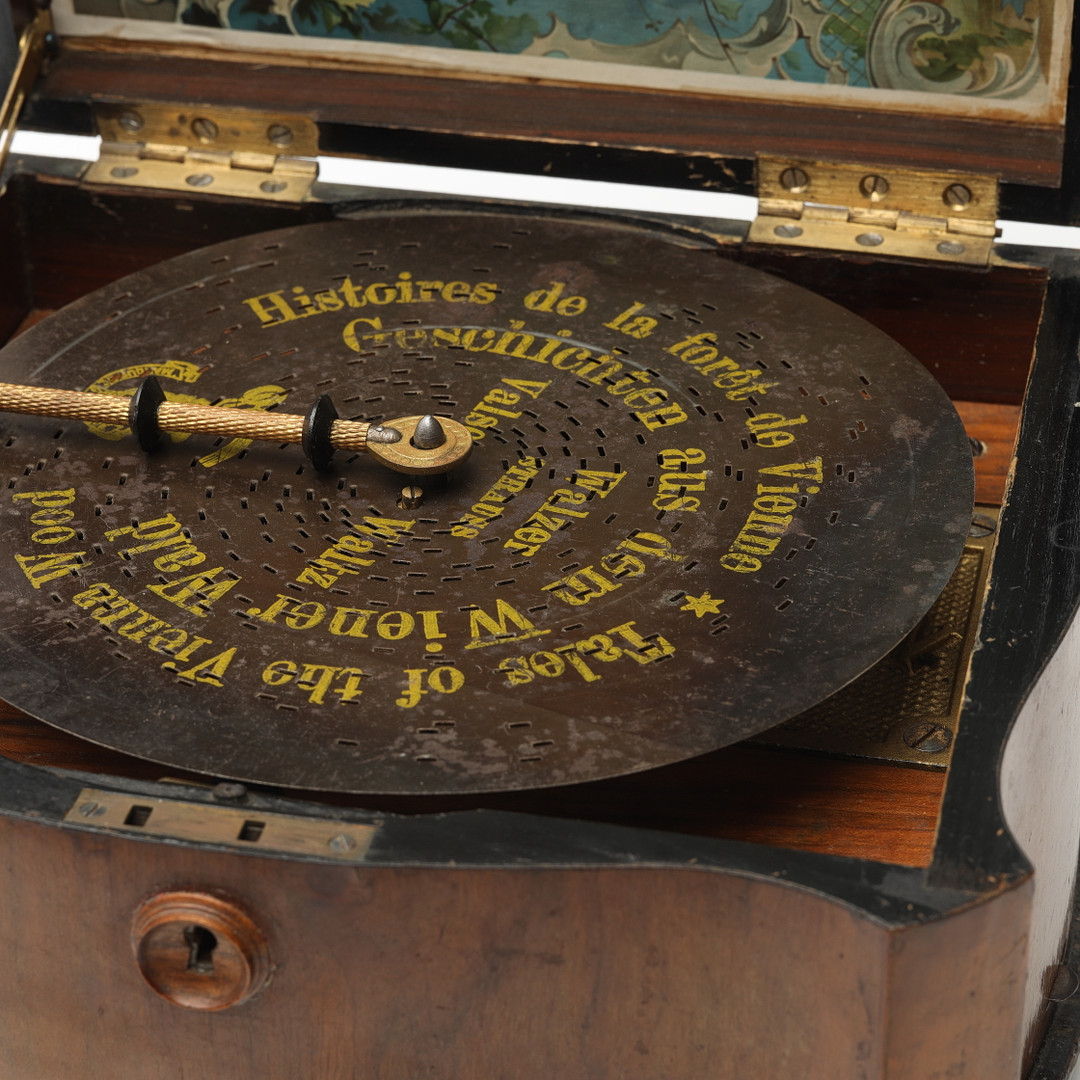 Histoires de la forêt de Vienne
Geschichten aus dem Wiener Wald
Tales of the Vienna Woo
Valse
Walzer
Waltz
Strauss